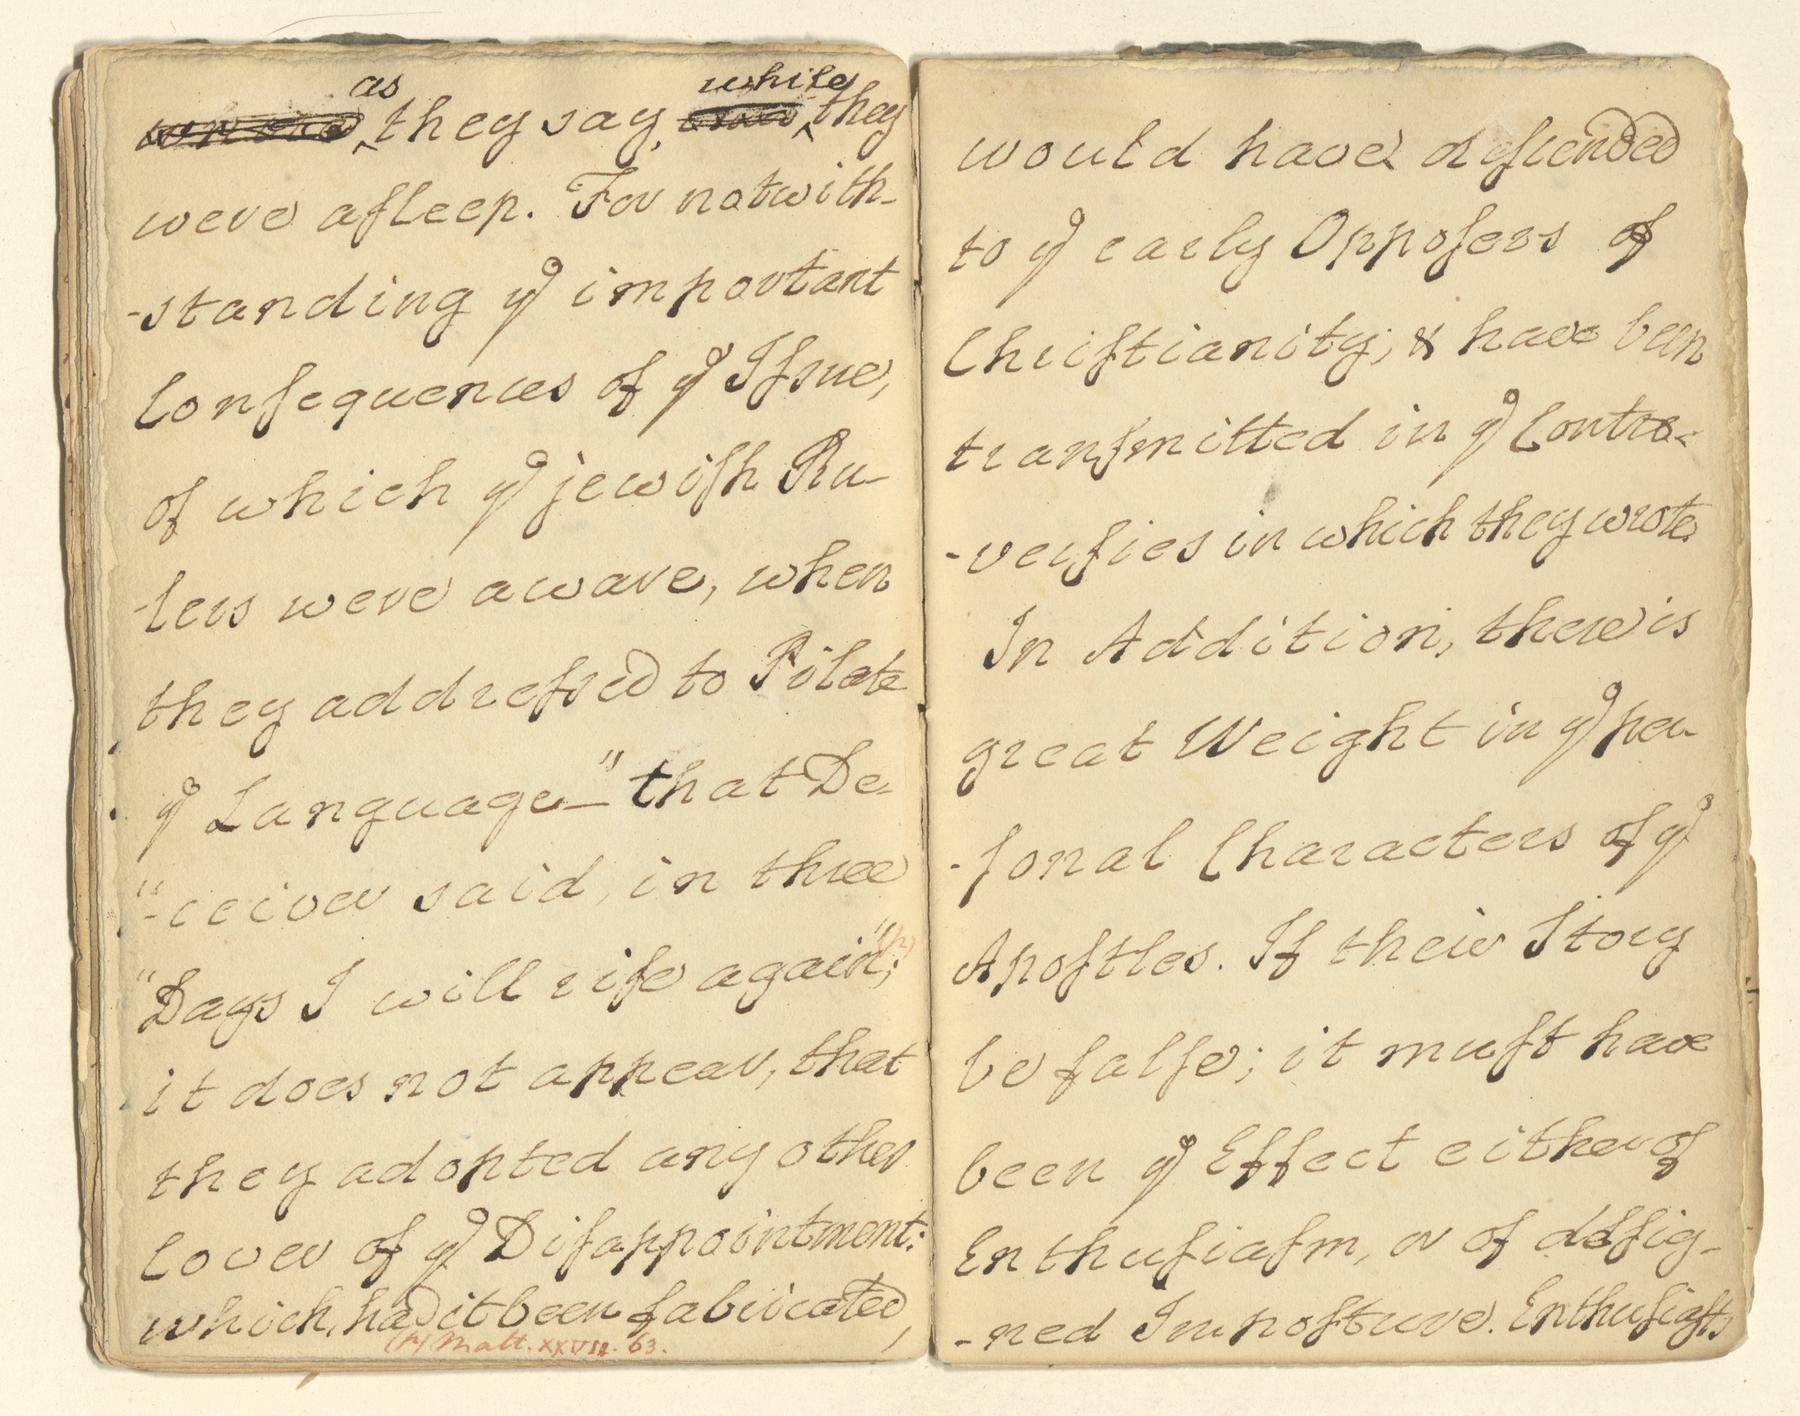 as while
they say, they
were asleep. For notwith-
-standing ye important
Consequences of ye Issue,
of which ye jewish Ru-
-lers were aware, when
they addressed to Pilate
ye Language — "that De-
"-ceiver said, in three
"Days I will rise again"; (r)
it does not appear, that
they adopted any other
Cover of ye Disappointment:
which, had it been fabricated,
(r) Matt. XXVII. 63.
would have descended
to ye early Opposers of
Christianity; & have been
transmitted in ye Contro-
-versies in which they wrote.
In Addition, there is
great Weight in ye per-
-sonal Characters of ye
Apostles. If their Story
be false; it must have
been ye Effect either of
Enthusiasm, or of desig-
-ned Imposture. Enthusiasts